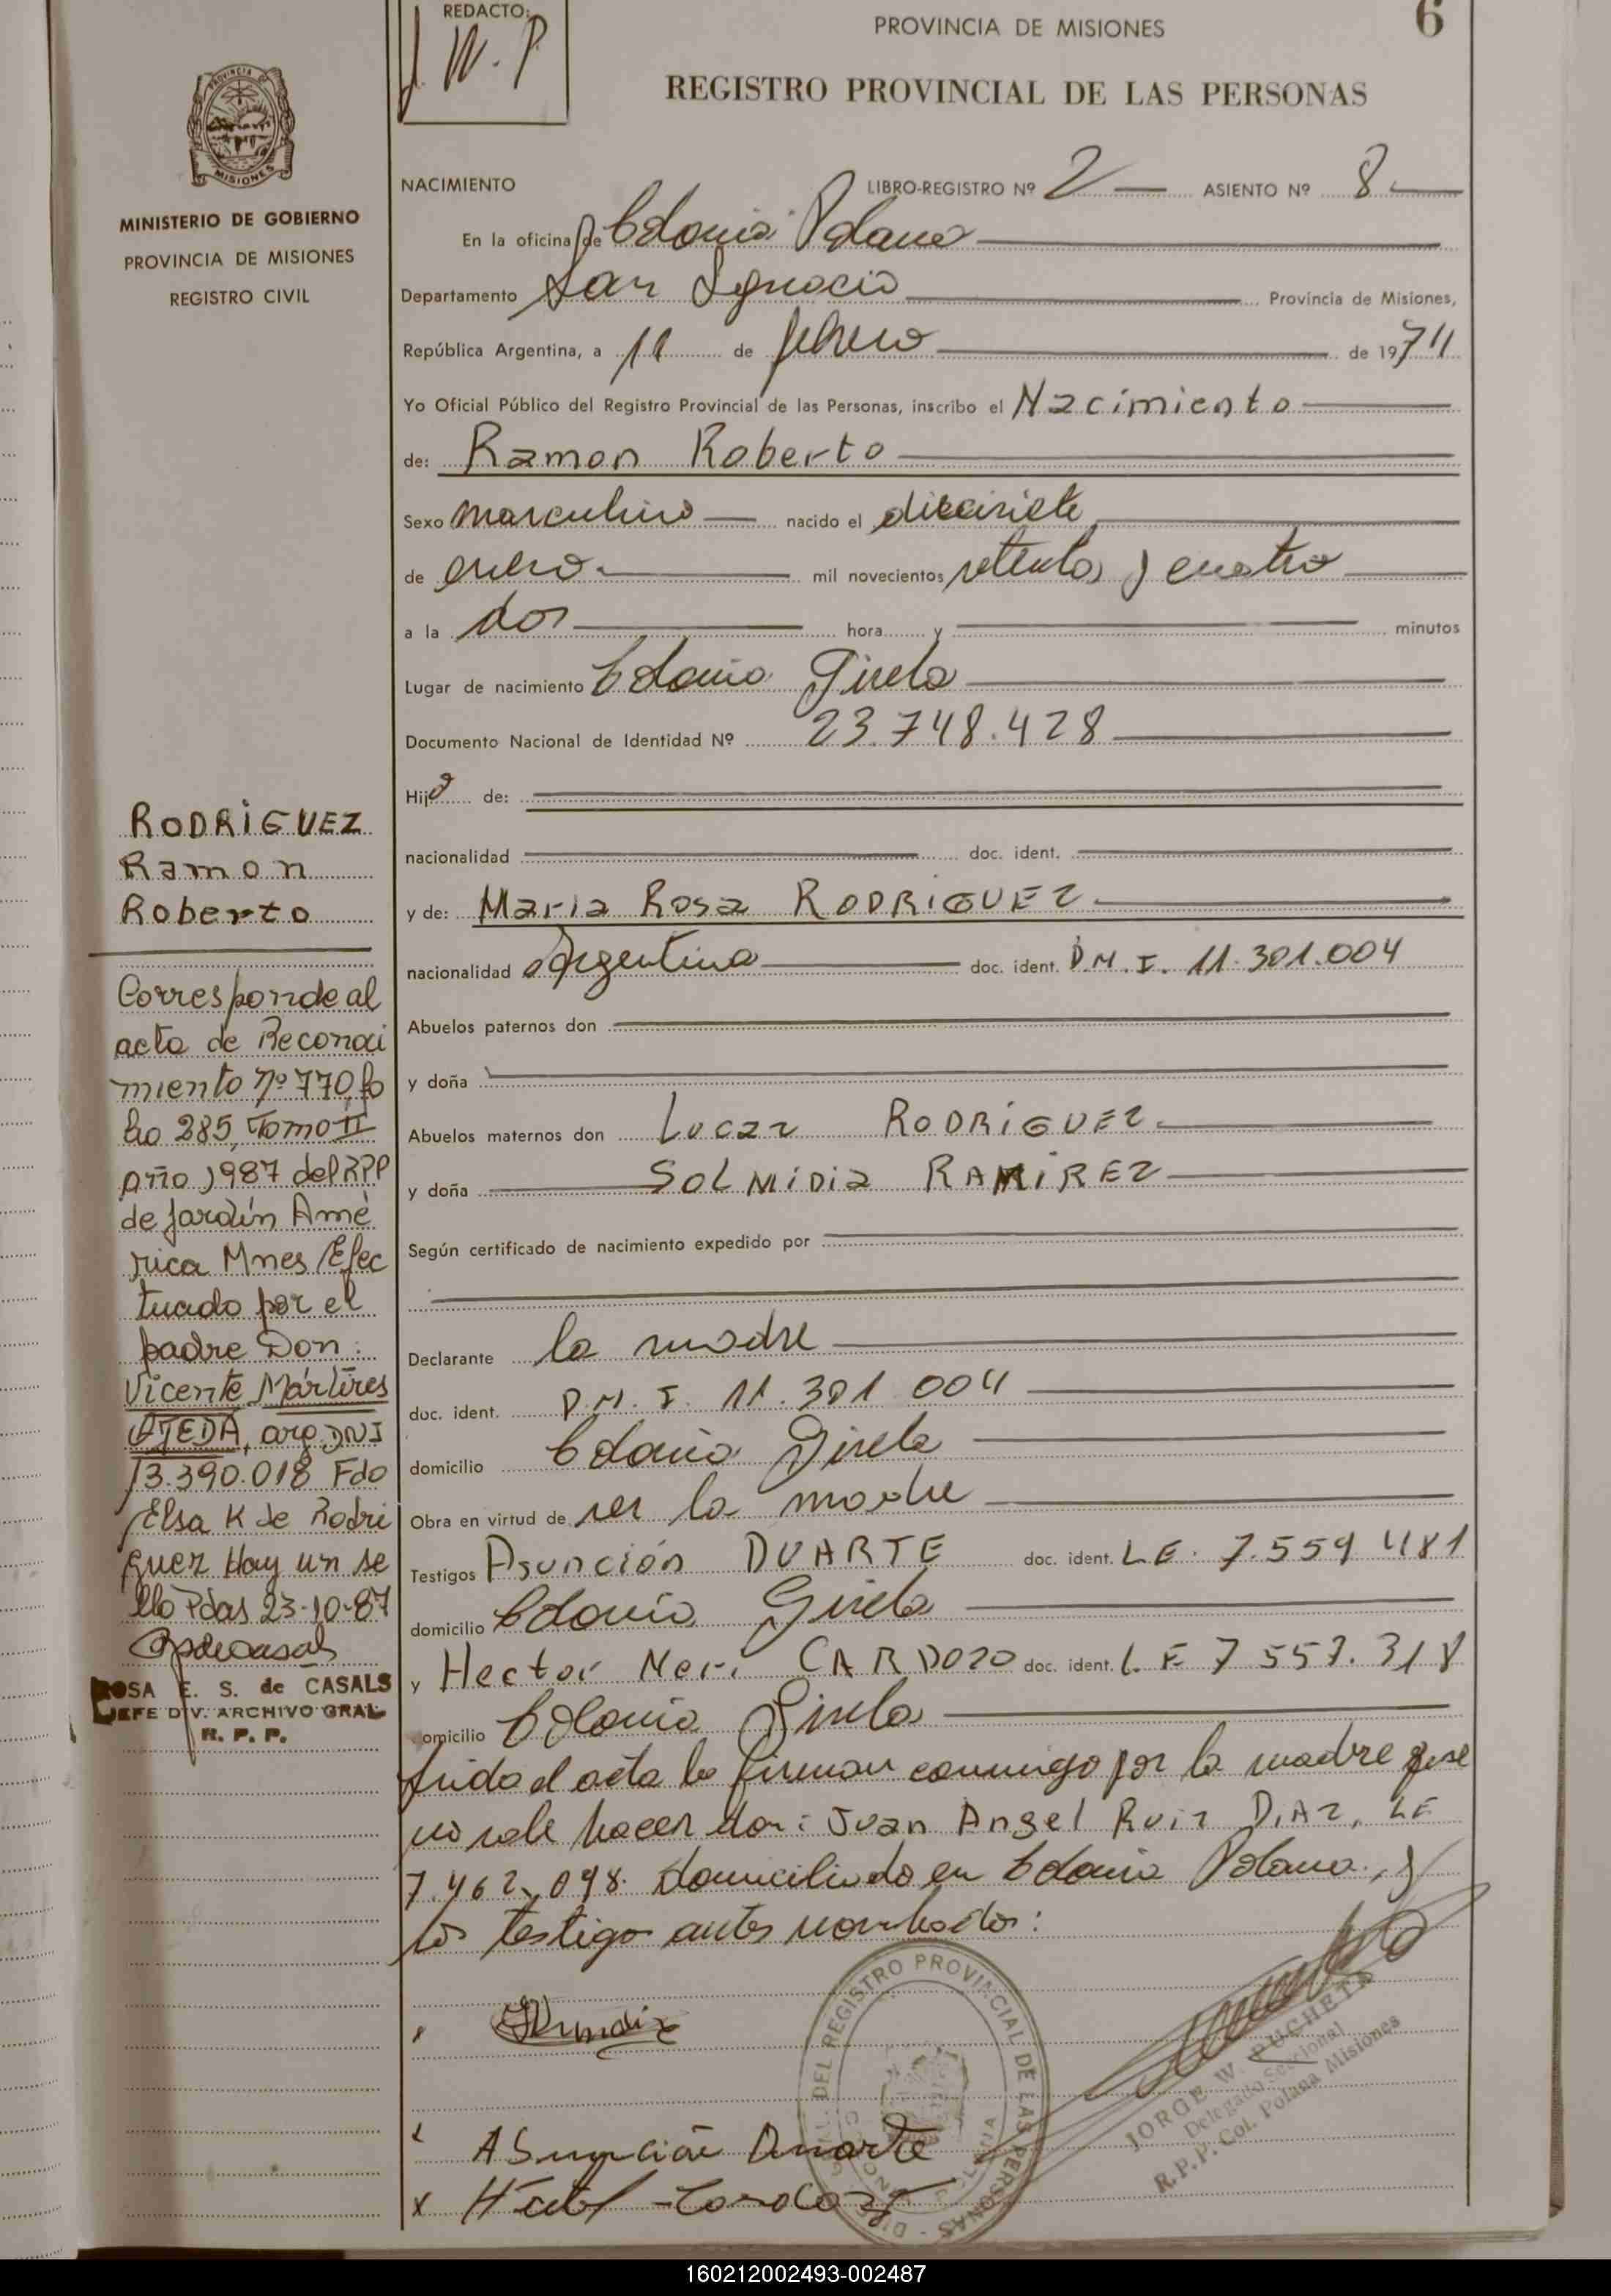 REDACTO:
J. W. P.
PROVINCIA DE MISIONES
6
REGISTRO PROVINCIAL DE LAS PERSONAS
MISIONES
MINISTERIO DE GOBIERNO
PROVINCIA DE MISIONES
REGISTRO CIVIL
NACIMIENTO
LIBRO-REGISTRO Nº 2 ASIENTO Nº 8
En la oficina de Colonia Polana
Departamento San Ignacio Provincia de Misiones,
República Argentina, a 11 de febrero de 1974
Yo Oficial Público del Registro Provincial de las Personas, inscribo el Nacimiento
de: Ramon Roberto
Sexo masculino nacido el diecisiete
de enero mil novecientos setenta y cuatro
a la dos hora y minutos
Lugar de nacimiento Colonia Gisela
Documento Nacional de Identidad Nº 23.748.428
Hijo de:
nacionalidad doc. ident.
y de: Maria Rosa RODRIGUEZ
nacionalidad Argentina doc. ident. D.N.I. 11.301.004
Abuelos paternos don
y doña
Abuelos maternos don Lucaz RODRIGUEZ
y doña SOLNIDIA RAMIREZ
Según certificado de nacimiento expedido por
Declarante la madre
doc. ident. D.N.I. 11.301 004
domicilio Colonia Gisela
Obra en virtud de ser la madre
Testigos Asunción DUARTE doc. ident. L.E. 7.559 481
domicilio Colonia Gisela
y Hector Neri CARDOZO doc. ident. L.E 7 557.318
domicilio Colonia Gisela
Leida el acta la firman conmigo por la madre que se
no sabe hacer don: Juan Angel Ruiz DIAZ, LE
7.462.098. domiciliado en Colonia Polana, y
los testigos antes nombrados:
RODRIGUEZ
Ramon
Roberto
Corresponde al
acta de Reconoci
miento nº 770, fo
lio 285, Tomo II
año 1987 del RPP
de Jardín Amé
rica Mnes/Efec
tuado por el
padre Don:
Vicente Mártires
OJEDA, arg. DNI
13.390.018 Fdo
Elsa K de Rodri
guez Hay un se
llo Pdas 23-10-87
ROSA E. S. de CASALS
JEFE DIV. ARCHIVO GRAL.
R. P. P.
DEL REGISTRO PROVINCIAL DE LAS PERSONAS
JORGE W. PUCHETA
Delegado Seccional
R.P.P. Col. Polana Misiones
x Asunción Duarte
x Hector Cardozo
160212002493-002487